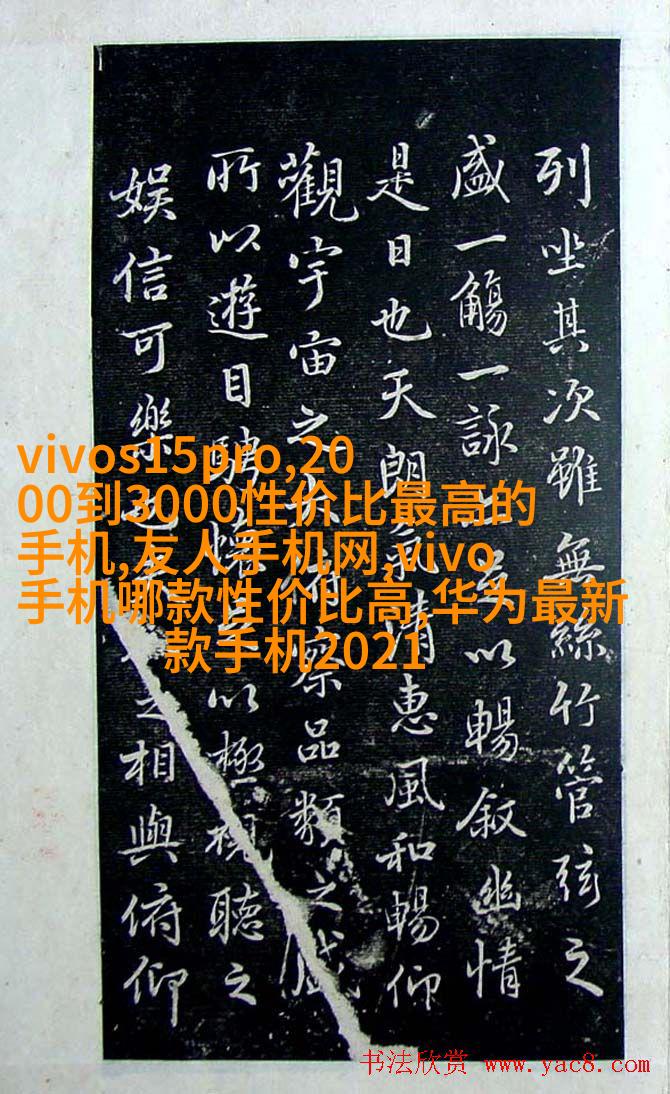 列坐其次雖無絲竹管弦之
盛一觴一詠以暢叙幽情
是日也天朗氣清惠風和暢仰
觀宇宙之察品類之盛
所以遊目騁懷足以極視聽之
娛信可樂之相與俯仰
vivos15pro,20
00到3000性价比最高的
手机,友人手机网,vivo
手机哪款性价比高,华为最新
款手机2021
书法欣赏 www.yac8.com